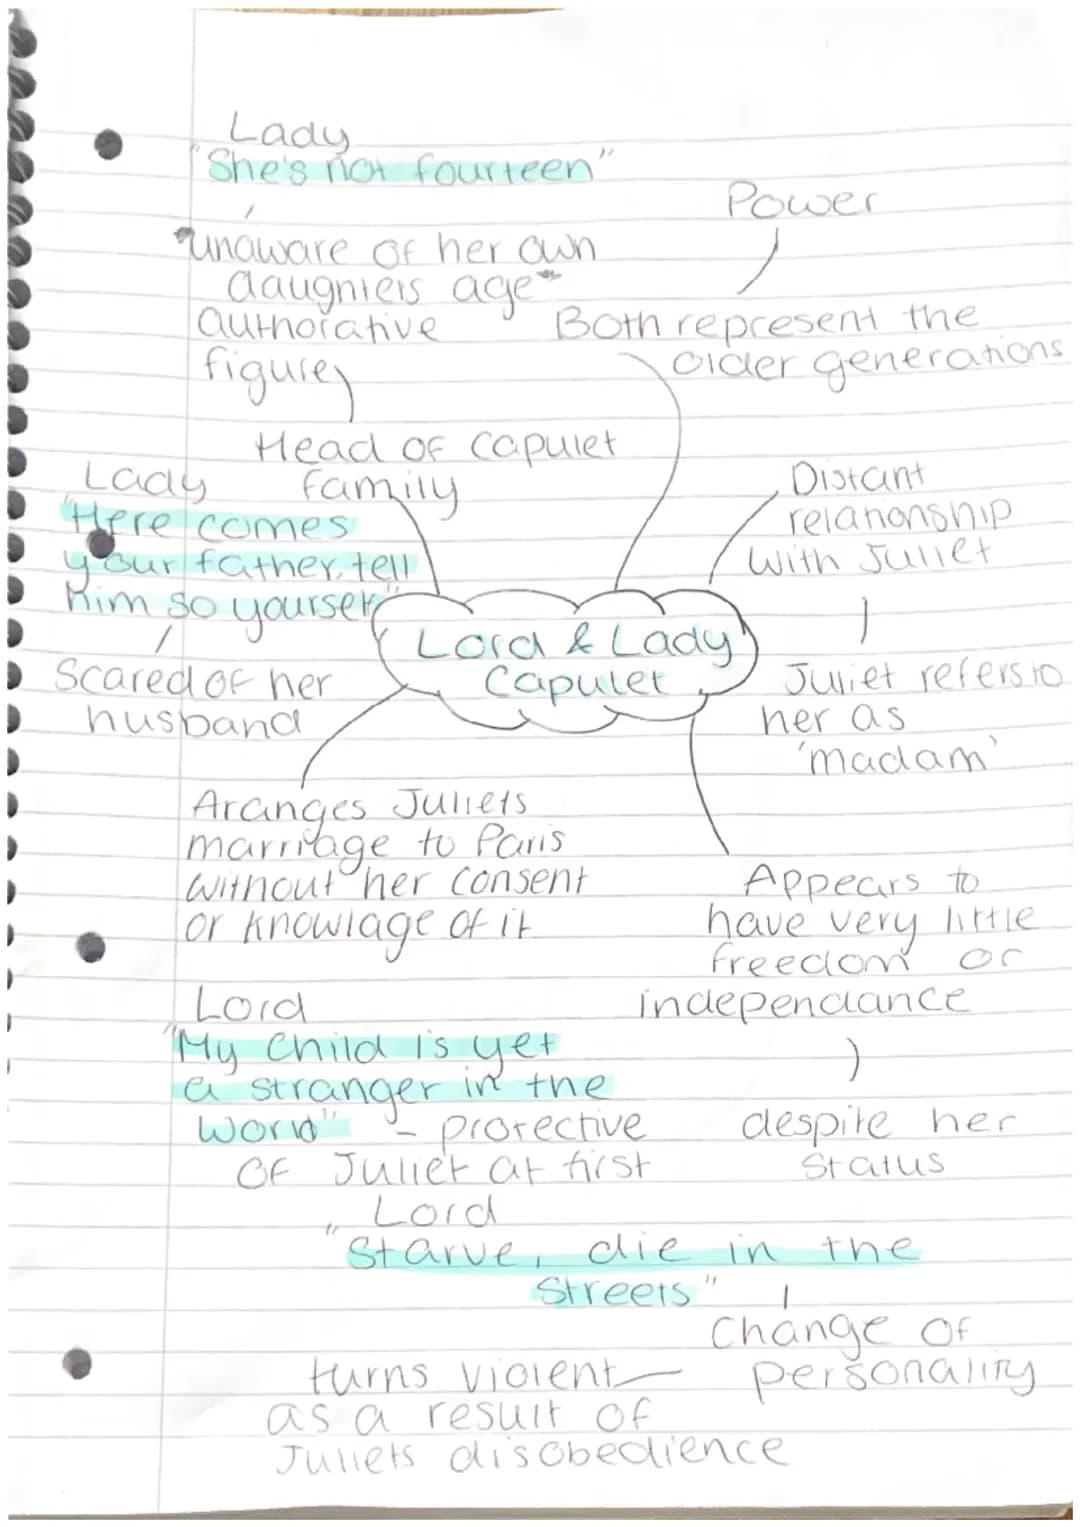 Lady
"She's not fourteen"
unaware of her own
daughters age
Authorative
figure
Power
Both represent the
older generations
Head of Capulet
family
Lady
"Here comes
your father, tell
him so yourself"
Scared of her
husband
Distant
relationship
with Juliet
Lord & Lady
Capulet
Juliet refers to
her as
'madam'
Aranges Juliets
marriage to Paris
without her consent
or knowlage of it
Appears to
have very little
freedom or
independance
despite her
status
Lord
"My Child is yet
a stranger in the
world" - protective
of Juliet at first
Lord
"Starve, die in the
streets"
Change of
personality
turns violent
as a result of
Juliets disobedience